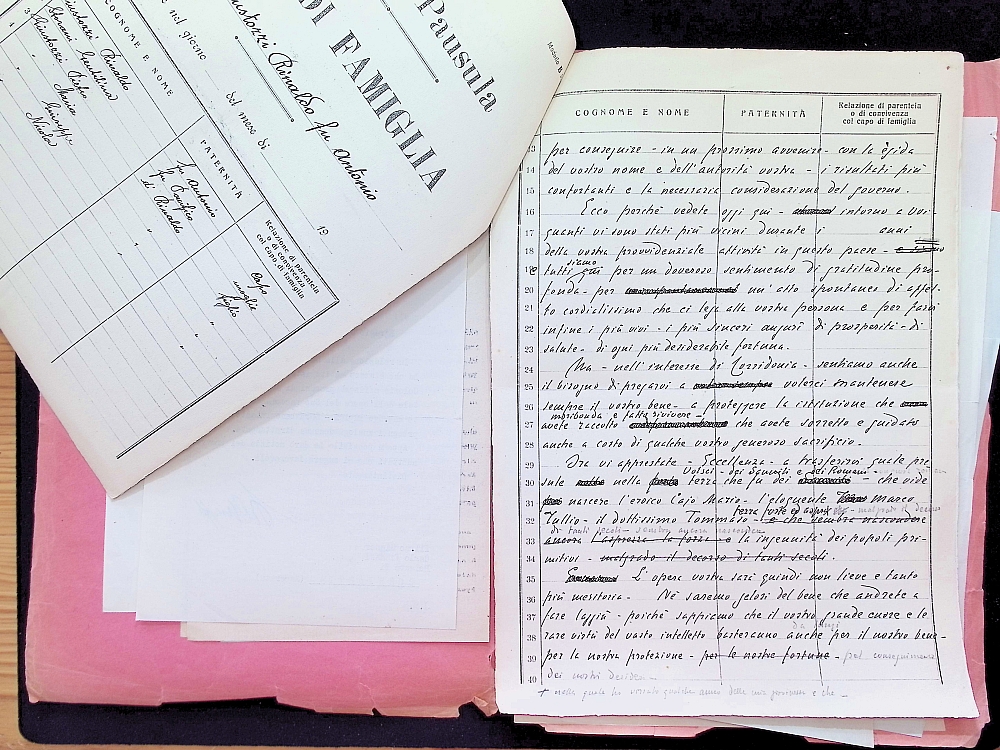 Pausula
DI FAMIGLIA
Giustozzi Rinaldo fu Antonio
nel giorno
del mese di
19
COGNOME E NOME
PATERNITÀ
Relazione di parentela
o di convivenza
col capo di famiglia
Giustozzi Rinaldo
fu Antonio
Capo
fu Pacifico
moglie
Giustozzi Pietro
di Rinaldo
figlio
" Maria
" Giuseppe
" Nicola
COGNOME E NOME
PATERNITÀ
Relazione di parentela
o di convivenza
col capo di famiglia
13 per conseguire - in un prossimo avvenire - con la égida
14 del vostro nome e dell'autorità vostra - i risultati più
15 confortanti e la necessaria considerazione del governo.
16 Ecco perchè vedete oggi qui - intorno a Voi
17 quanti vi sono stati più vicini durante i anni
18 della vostra provvidenziale attività in questo paese -
siamo
19 tutti qui per un doveroso sentimento di gratitudine pro-
20 fonda - per un'atto spontaneo di affet-
21 to cordialissimo che ci lega alla vostra persona e per farvi
22 infine i più vivi - i più sinceri auguri di prosperità - di
23 salute - di ogni più desiderabile fortuna.
24 Ma - nell'interesse di Corridonia - sentiamo anche
25 il bisogno di pregarvi a volerci mantenere
26 sempre il vostro bene - a proteggere la istituzione che
moribonda e fatta rivivere -
27 avete raccolto che avete sorretto e guidato
28 anche a costo di qualche vostro generoso sacrificio.
29 Ora vi apprestate - Eccellenza - a trasferirvi quale pre-
Volsci - dei Sanniti e dei Romani -
30 side nella terra che fu dei - che vide
31 nascere l'eroico Cajo Mario - l'eloquente Marco
terra forte ed aspra - malgrado il decorso
32 Tullio - il dottissimo Tommaso - e che sembra nascondere
di tanti secoli - sembra ancora nascondere
33 ancora l'asprezza la forza e la ingenuità dei popoli pri-
34 mitivi - malgrado il decorso di tanti secoli.
35 L'opera vostra sarà quindi non lieve e tanto
36 più meritoria - Nè saremo gelosi del bene che andrete a
37 fare laggiù - poichè sappiamo che il vostro grande cuore e le
38 rare virtù del vasto intelletto basteranno anche per il nostro bene -
39 per la nostra protezione - per le nostre fortune - pel conseguimento
40 dei nostri desideri -
+ nella quale ho versato qualche anno della mia giovinezza e che -